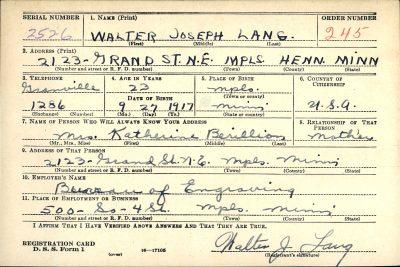 SERIAL NUMBER 1. NAME (Print) ORDER NUMBER
2526 WALTER JOSEPH LANG. 245
(First) (Middle) (Last)
2. ADDRESS (Print)
2123- GRAND ST. N.E. MPLS. HENN. MINN
(Number and street or R. F. D. number) (Town) (County) (State)
3. TELEPHONE 4. AGE IN YEARS 5. PLACE OF BIRTH 6. COUNTRY OF CITIZENSHIP
Granville 23 Mpls.
DATE OF BIRTH (Town or county)
1286 9 29 1917 Minn U.S.A
(Exchange) (Number) (Mo.) (Day) (Yr.) (State or country)
7. NAME OF PERSON WHO WILL ALWAYS KNOW YOUR ADDRESS 8. RELATIONSHIP OF THAT PERSON
Mrs. Katherine Mother
(Mr., Mrs., Miss) (First) (Middle) (Last)
9. ADDRESS OF THAT PERSON
2123- Grand St. N.E. Mpls. Minn
(Number and street or R. F. D. number) (Town) (County) (State)
10. EMPLOYER'S NAME
Bureau of Engraving
11. PLACE OF EMPLOYMENT OR BUSINESS
500- So- 4 St. Mpls. Minn
(Number and street or R. F. D. number) (Town) (County) (State)
I AFFIRM THAT I HAVE VERIFIED ABOVE ANSWERS AND THAT THEY ARE TRUE.
REGISTRATION CARD
D. S. S. Form 1 (over) 16—17105 Walter J. Lang
(Registrant's signature)